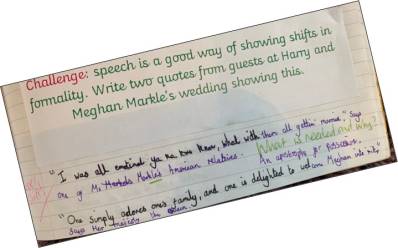 Challenge: speech is a good way of showing shifts in
formality. Write two quotes from guests at Harry and
Meghan Markle's wedding showing this.
"I was all ya me two know, what with them all gettin' married," Says
one of Ms Markles American relatives.
What is needed and why?
An apostrophe for possession.
"One simply adores ones family, and one is delighted to welcome Meghan into it,"
Says Her majesty the Queen.